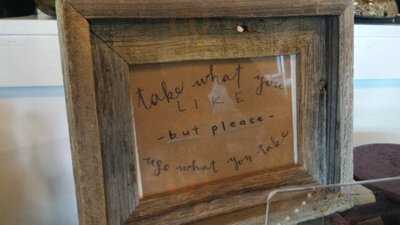 take what you
LIKE
-but please-
use what you take